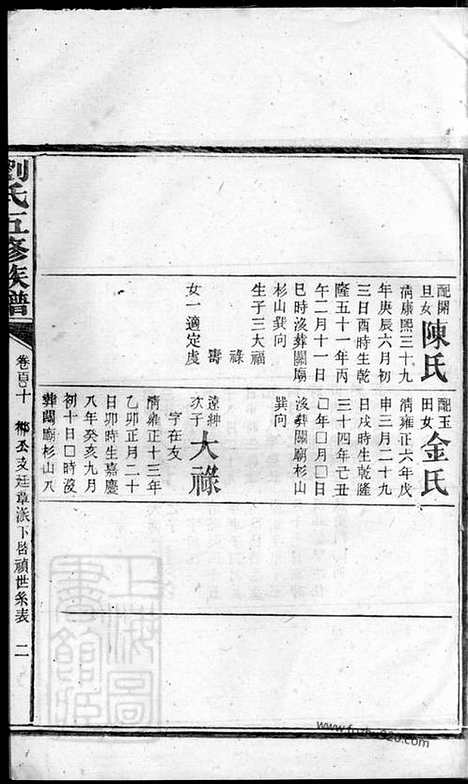 配開
旦女
陳氏
清康熙三十九
年庚辰六月初
三日酉時生乾
隆五十一年丙
午二月十一日
巳時沒葬關廟
杉山巽向
生子三大福
祿
壽
女一適定虞
配玉
田女
金氏
清雍正六年戊
申三月二十九
日戌時生乾隆
三十四年己丑
〇年〇月〇日
沒葬關廟杉山
巽向
遠紳
次子
大祿
字在友
清雍正十三年
乙卯正月二十
日卯時生嘉慶
八年癸亥九月
初十日〇時沒
葬關廟杉山八
劉氏五修族譜
卷百十
鄉公支廷章派下啓禎世系表
二
上海圖書館藏
www.fuzhu920.com